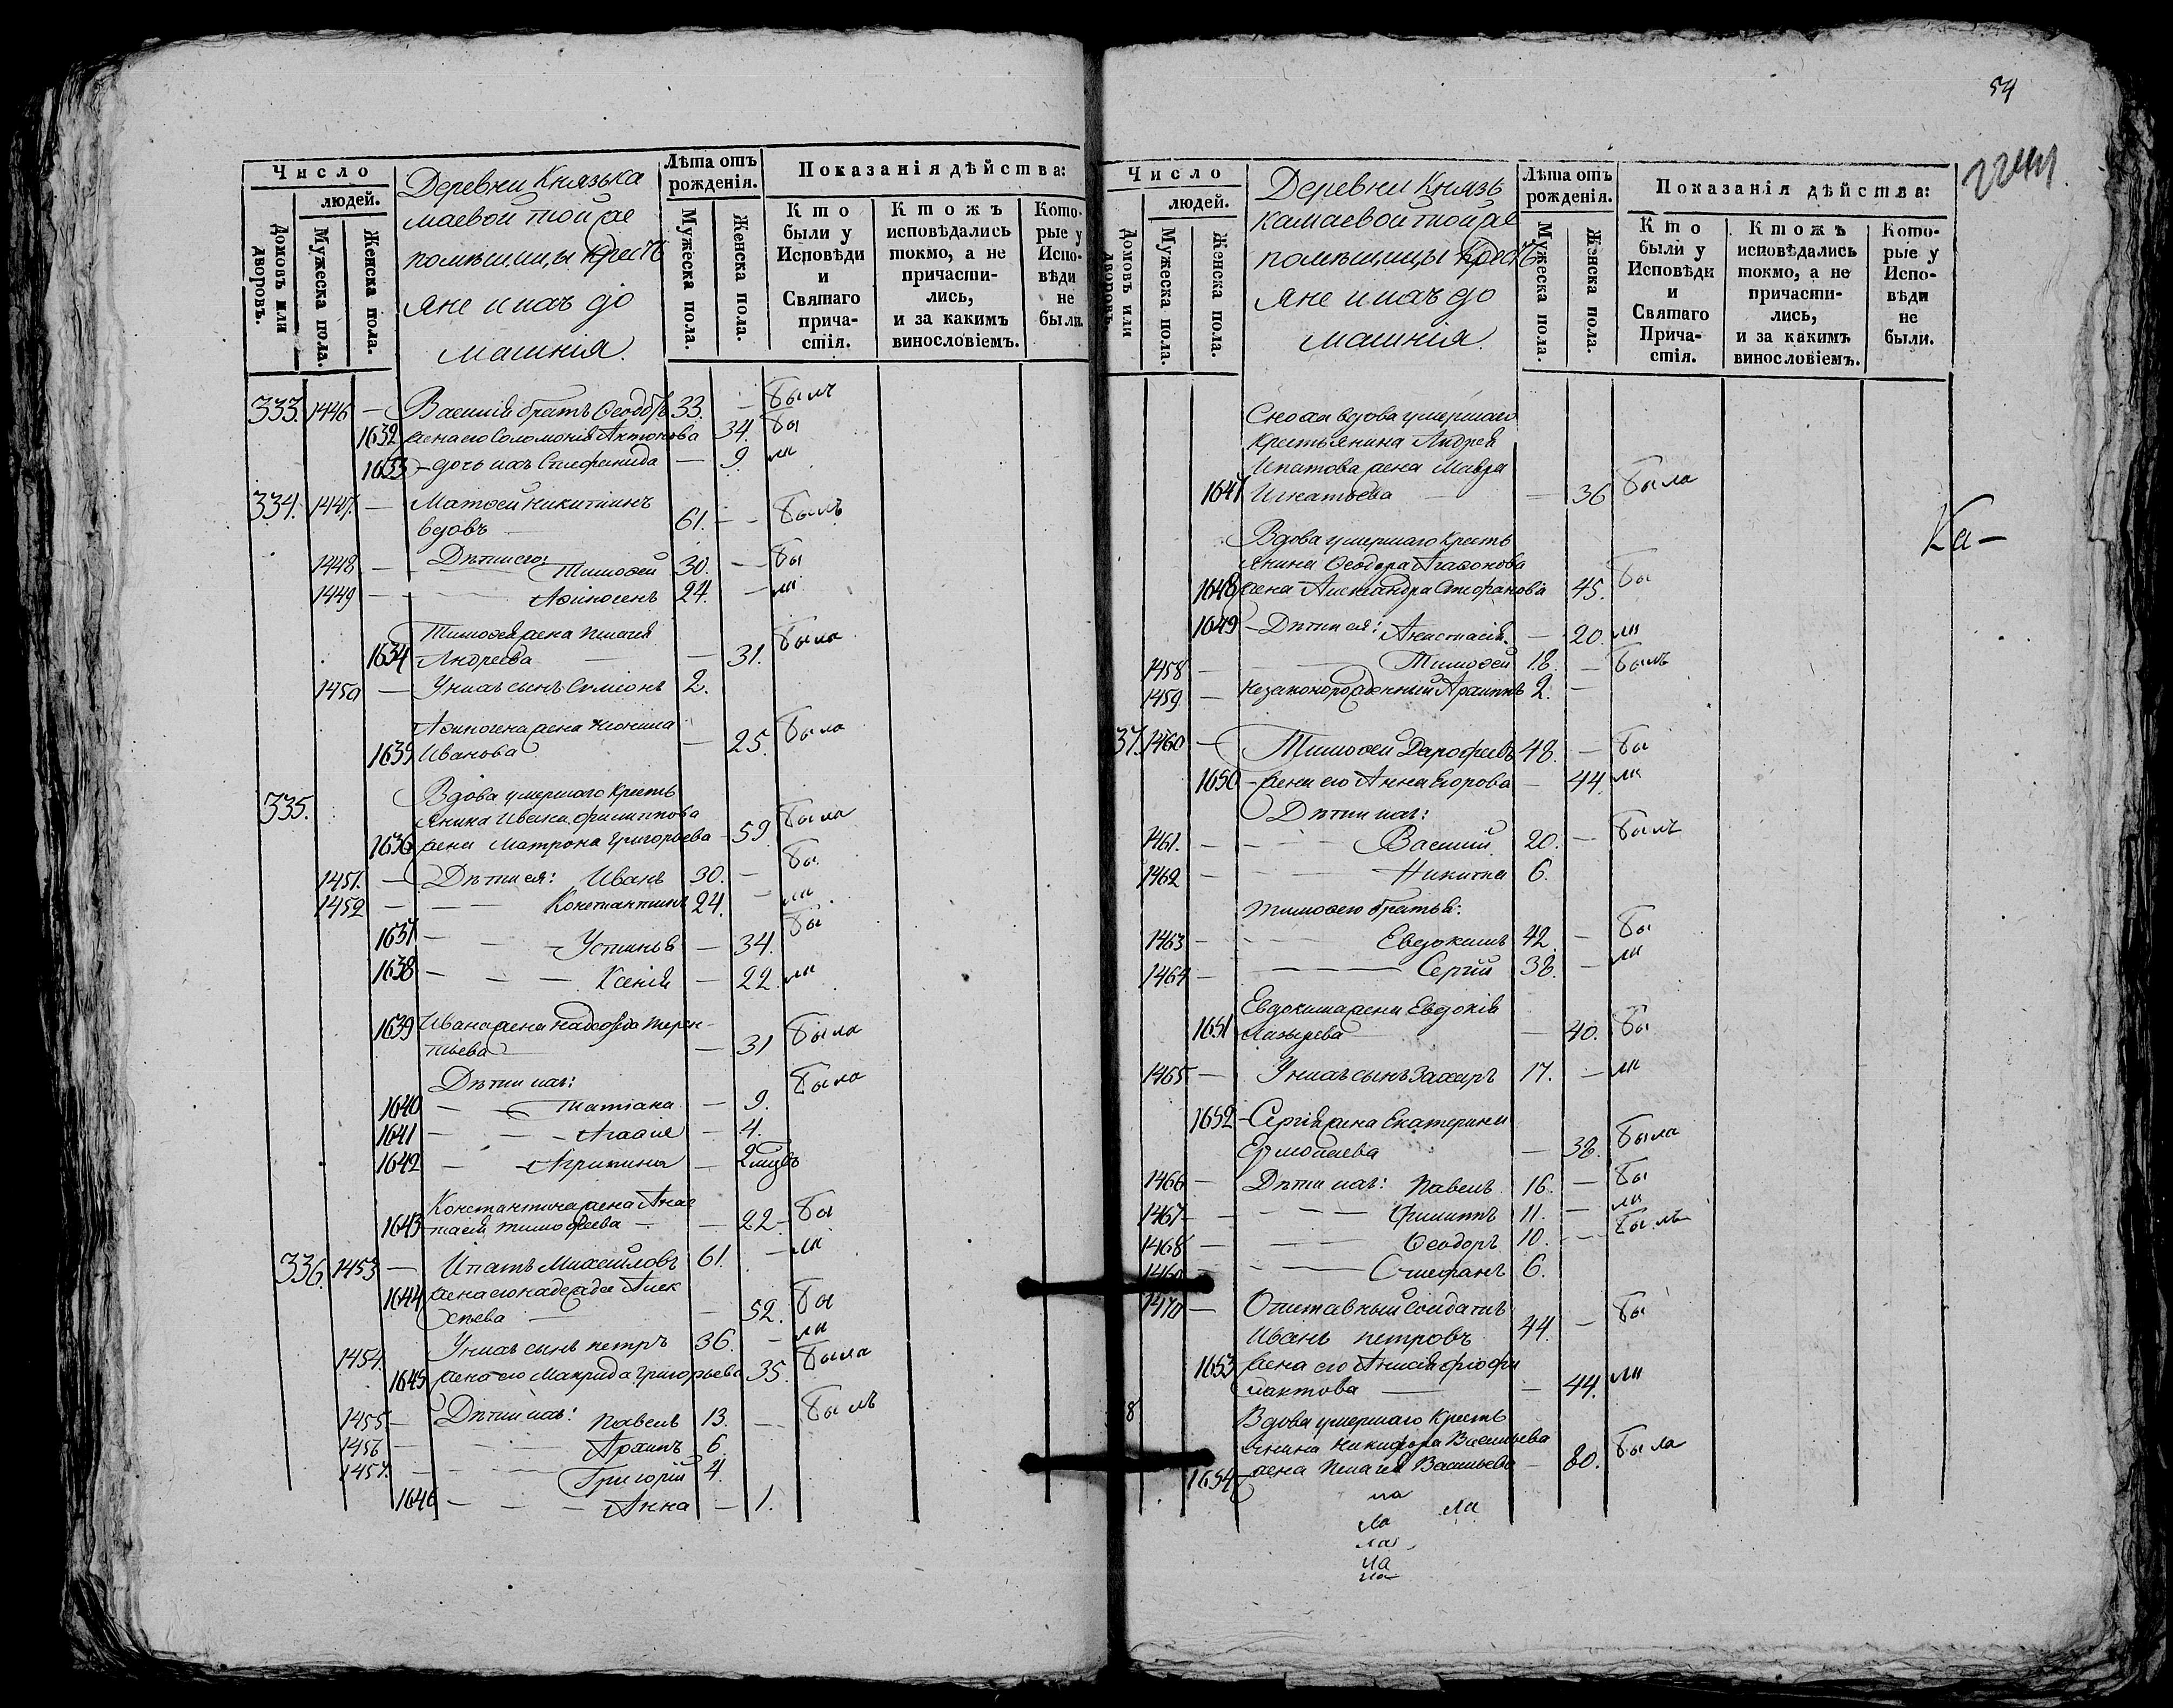 54
Число
людей.
Домовъ или дворовъ.
Мужеска пола.
Женска пола.
Деревни Князька
маевой той же
помѣщицы Кресть
яне и ихъ до
машнія.
Лѣта отъ рожденія.
Мужеска пола.
Женска пола.
Показанія дѣйства:
Кто были у Исповѣди и Святаго причастія.
Ктожъ исповѣдались токмо, а не причастились, и за какимъ винословіемъ.
Которые у Исповѣди не были.
333. 1446 — Василія братъ Ѳеодоръ 33. — былъ
1632 жена его Соломонія Антонова 34. бы
1633 — дочь ихъ Стефанида — 9. ли
334. 1447. — Матѳей Никитинъ
вдовъ 61. — былъ
1448. — Дѣти его: Тимоѳей 30. — бы
1449 — Аѳиногенъ 24. — ли
Тимоѳея жена Пелагея
1634 Андреева — 31. была
1450 — У нихъ сынъ Симіонъ 2.
Аѳиногена жена Неонила
1635 Иванова — 25. была
335. Вдова умершаго Кресть
янина Ивана Филиппова
1636 жена Матрона Григорьева — 59. была
1451. — Дѣти ея: Иванъ 30. — бы
1452 — Константинъ 24. — ли
1637 — Устинья — 34. бы
1638 — Ксенія — 22. ли
1639 Ивана жена Надежда Терен-
тьева — 31 была
Дѣти ихъ:
1640 — Татіана — 9. была
1641 — Агафія — 4.
1642 — Агрипина — 2 мцвъ
Константина жена Анас
1643 тасія Тимофеева — 22 — бы
336. 1453 — Ипатъ Михайловъ 61. — ли
1644 жена его Надежда Алек
сѣева — 52. бы
1454. У нихъ сынъ Петръ 36. — ли
1645 жена его Макрида Григорьева 35. была
1455 — Дѣти ихъ: Павелъ 13. — былъ
1456 — Архипъ 6.
1457. — Григорій 4.
1646 — Анна — 1.
Число
людей.
Домовъ или дворовъ.
Мужеска пола.
Женска пола.
Деревни Князь
камаевой той же
помѣщицы Кресть
яне и ихъ до
машнія.
Лѣта отъ рожденія.
Мужеска пола.
Женска пола.
Показанія дѣйства:
Кто были у Исповѣди и Святаго Причастія.
Ктожъ исповѣдались токмо, а не причастились, и за какимъ винословіемъ.
Которые у Исповѣди не были.
Сноха вдова умершаго
Крестьянина Андрея
Ипатова жена Мавра
1647 Игнатьева — 36 была
Ка-
Вдова умершаго Кресть
янина Ѳеодора Агафонова
1648 жена Александра Стефанова 45. бы
1649 — Дѣти ея: Анастасія — 20. ли
1458 — Тимоѳей 18. — былъ
1459 — Незаконорожденный Архипъ 2. —
37. 1460 — Тимоѳей Дарофеевъ 48. — бы
1650 — жена его Анна Егорова — 44. ли
Дѣти ихъ:
1461. — Василій 20. — былъ
1462 — Никита 6.
Тимоѳею братья:
1463 — Евдокимъ 42. — бы
1464 — Сергій 38. — ли
Евдокима жена Евдокія
1651 Лазырева — 40. бы
1465 — У нихъ сынъ Захаръ 17. — ли
1652 — Сергія жена Екатерина
Ермолаева — 38. была
1466 — Дѣти ихъ: Павелъ 16. — бы
1467 — Филиппъ 11. — ли
1468 — Ѳеодоръ 10. — былъ
1469 — Стефанъ 6.
1470 — Отставный солдатъ
Иванъ Петровъ 44. — бы
1653 жена его Анисія Фіофи
лактова — 44. ли
8 Вдова умершаго Кресть
янина Никифора Васильева
1654 жена Пелагея Васильева — 80. была
ла
ла
ла
ла
ла
ла